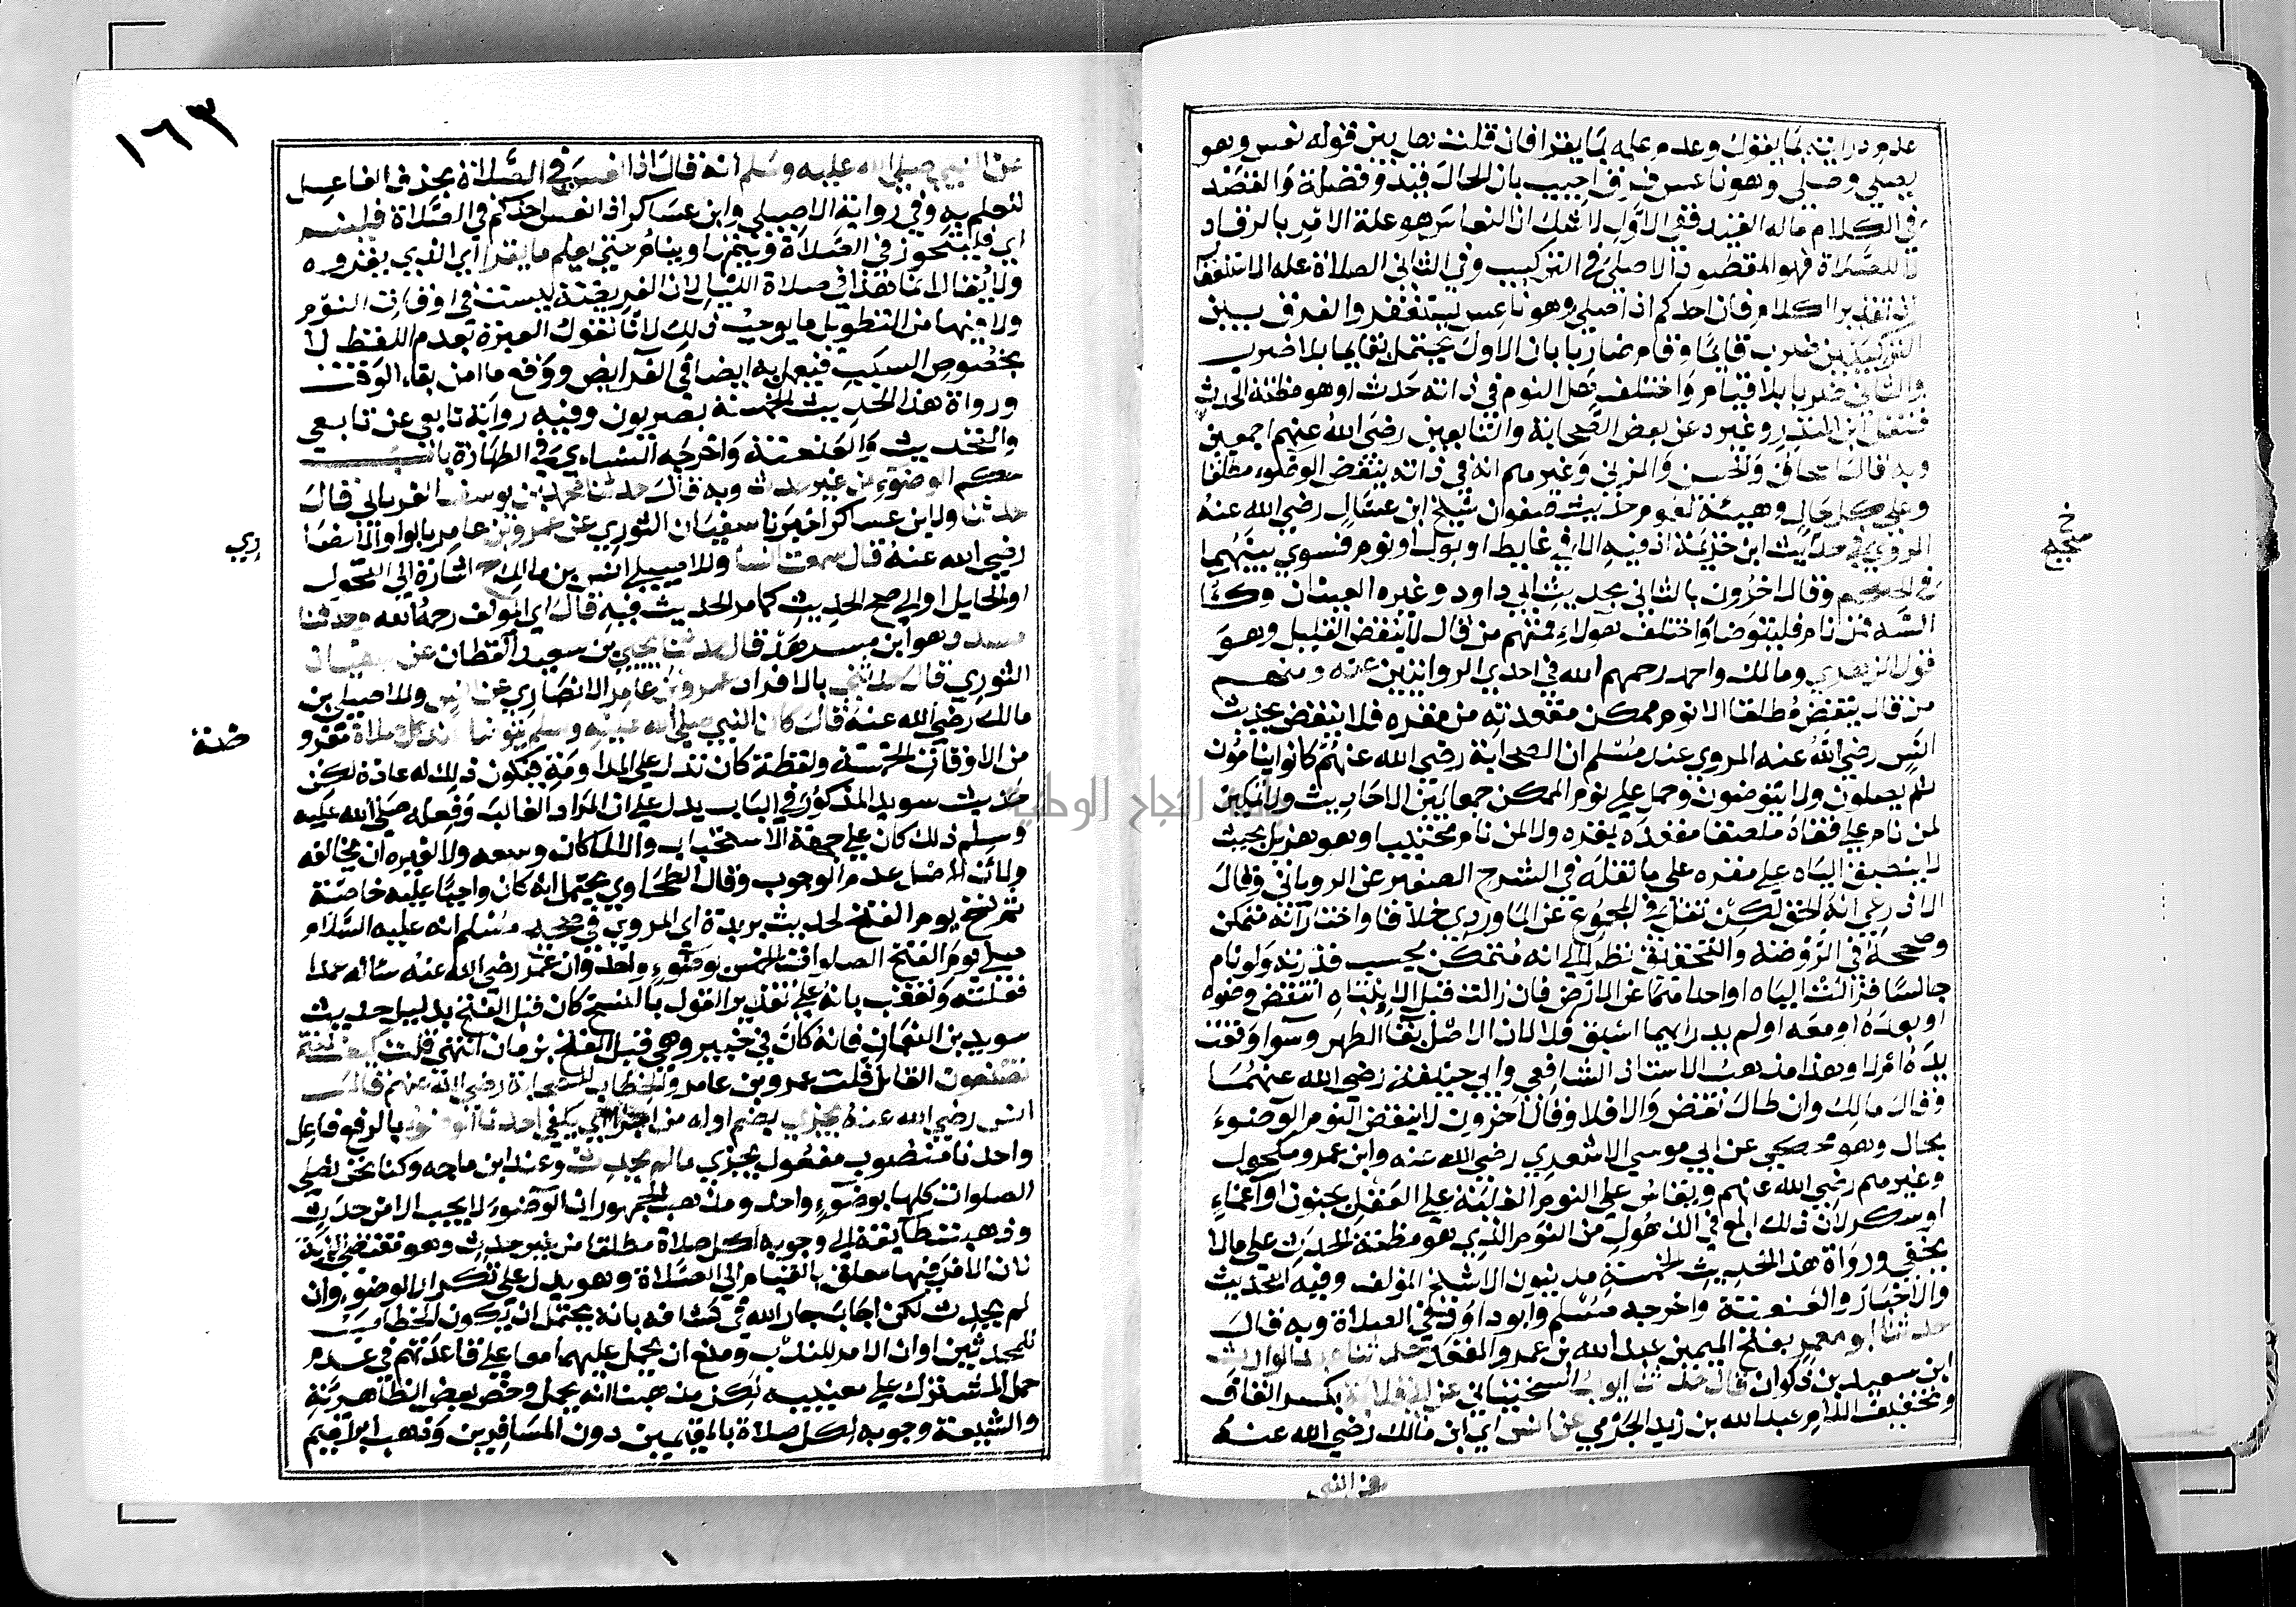 عدم درايته بما يقول وعدم علمه بما يقرا فان قلت هل بين قوله نعس وهو
يصلي وصلي وهو ناعس فرق اجيب بان الحال قيد وفضلة والقصد
في الكلام ماله القيد ففي الاول لا شك ان النعاس هو علة الامر بالرقاد
لا للصلاة فهو المقصود الاصلي في التركيب وفي الثاني الصلاة علة الاستغفار
اذ تقدير الكلام فان احدكم اذا صلي وهو ناعس يستغفر والفرق بين
التركيبين ضرب قايما وقام ضاربا بان الاول يحتمل قياما بلا ضرب
والثاني ضربا بلا قيام واختلف هل النوم في ذاته حدث او هو مظنة الحدث
فنقل ابن المنذر وغيره عن بعض الصحابة والتابعين رضي الله عنهم اجمعين
وبه قال اسحاق والحسن والمزني وغيرهم انه في ذاته ينقض الوضوء مطلقا
وعلي كل حال وهيئة لعموم حديث صفوان شيخ ابن عسال رضي الله عنه
المروي في حديث ابن خزيمة اذ فيه الا في غايط او بول او نوم فسوي بينهما
في الحكم وقال اخرون بالثاني بحديث ابي داود وغيره العينان وكاء
السه فمن نام فليتوضا واختلف هولاء فمنهم من قال لا ينقض القليل وهو
قول الزهري ومالك واحمد رحمهم الله في احدي الروايتين عنه ومنهم
من قال ينقض مطلقا الا نوم ممكن مقعدته من مقره فلا ينقض بحديث
انس رضي الله عنه المروي عند مسلم ان الصحابة رضي الله عنهم كانوا ينامون
ثم يصلون ولا يتوضون وحمل علي نوم الممكن جمعا بين الاحاديث ولا تمكين
لمن نام علي قفاه ملصقا مقعده بمقره ولا لمن نام محتبيا وهو هزيل بحيث
لا ينطبق الياه علي مقره علي ما نقله في الشرح الصغير عن الروياني وقال
الاذرعي انه الحق لكن نقل في المجموع عن الماوردي خلافا واختار انه متمكن
وصححه في الروضة والتحقيق نظرا الي انه متمكن بحسب قدرته ولو نام
جالسا فزالت الياه او احداهما عن الارض فان زالت قبل الانتباه انتقض وضوه
او بعده او معه او لم يدر ايهما اسبق فلا لان الاصل بقا الطهر وسوا وقعت
يده ام لا وهذا مذهب الاستاذ الشافعي وابي حنيفة رضي الله عنهما
وقال مالك وان طال نقض والا فلا وقال اخرون لا ينقض النوم الوضوء
بحال وهو محكي عن ابي موسي الاشعري رضي الله عنه وابن عمر ومكحول
وغيرهم رضي الله عنهم ويقاس علي النوم الغلبة علي العقل بجنون او اغماء
او سكر لان ذلك ابلغ في الذهول من النوم الذي هو مظنة الحدث علي ما لا
يخفي ورواة هذا الحديث الخمسة مدنيون الا شيخ المؤلف وفيه التحديث
والاخبار والعنعنة واخرجه مسلم وابو داود في الصلاة وبه قال
حدثنا ابو معمر بفتح الميمين عبد الله بن عمرو المقعد حدثنا عبد الوارث
ابن سعيد بن ذكوان قال حدثنا ايوب السختياني عن ابي قلابة بكسر القاف
وتخفيف اللام عبد الله بن زيد الجرمي عن انس اي ابن مالك رضي الله عنه
عن النبي
خ
صحيح
١٦٣
عن النبي صلي الله عليه وسلم انه قال اذا نعس في الصلاة بحذف الفاعل
للعلم به وفي رواية الاصيلي وابن عساكر اذا نعس احدكم في الصلاة فلينم
اي فليتجوز في الصلاة ويتمها وينام حتي يعلم ما يقرا اي الذي يقروه
ولا يقال انما هذا في صلاة الليل لان الفريضة ليست في اوقات النوم
ولا فيها من التطويل ما يوجب ذلك لانا نقول العبرة بعدم اللفظ لا
بخصوص السبب فيعمل به ايضا في الفرايض ووقع ما امن بقاء الوقت
ورواة هذا الحديث الخمسة بصريون وفيه رواية تابعي عن تابعي
والتحديث والعنعنة واخرجه النساءي في الطهارة باب
حكم الوضوء من غير حدث وبه قال حدثنا محمد بن يوسف الفريابي قال
حدثنا ولابن عساكر اخبرنا سفيان الثوري عن عمرو بن عامر بالواو الانصا
ري
رضي الله عنه قال سمعت انسا وللاصيلي انس بن مالك ح اشارة الي التحول
او الحايل او الي صح الحديث كما مر الحديث فيه قال اي المولف رحمه الله وحدثنا
مسدد وهو ابن مسرهد قال حدثنا يحيي بن سعيد القطان عن سفيان
الثوري قال حدثني بالافراد عمرو بن عامر الانصاري عن انس وللاصيلي بن
مالك رضي الله عنه قال كان النبي صلي الله عليه وسلم يتوضا عند كل صلاة مفرو
ضة
من الاوقات الخمسة ولفظة كان تدل علي المداومة فيكون ذلك له عادة لكن
حديث سويد المذكور في الباب يدل علي ان المراد الغالب وفعله صلي الله عليه
وسلم ذلك كان علي جهة الاستحباب والا لما كان وسعه ولا لغيره ان يخالفه
ولان الاصل عدم الوجوب وقال الطحاوي يحتمل انه كان واجبا عليه خاصة
ثم نسخ يوم الفتح لحديث بريدة اي المروي في صحيح مسلم انه عليه السلام
صلي يوم الفتح الصلوات الخمس بوضوء واحد وان عمر رضي الله عنه ساله عمدا
فعلته وتعقب بانه علي تقدير القول بالنسخ كان قبل الفتح بدليل حديث
سويد بن النعمان فانه كان في خيبر وهي قبل الفتح بزمان انتهي قلت كيف كنتم
تصنعون القايل قلت عمرو بن عامر والخطاب للصحابة رضي الله عنهم قال
انس رضي الله عنه يجزي بضم اوله من اجزا اي يكفي احدنا الوضوء بالرفع فاعل
واحدنا منصوب مفعول يجزي ما لم يحدث وعند ابن ماجه وكنا نحن نصلي
الصلوات كلها بوضوء واحد ومذهب الجمهور ان الوضوء لا يجب الا من حدث
وذهبت طايفة الي وجوبه لكل صلاة مطلقا من غير حدث وهو مقتضي الاية
لان الامر فيها معلق بالقيام الي الصلاة وهو يدل علي تكرار الوضوء وان
لم يحدث لكن اجاب جار الله في كشافه بانه يحتمل ان يكون الخطاب
للمحدثين او ان الامر للندب ومنع ان يحمل عليهما معا علي قاعدتهم في عدم
حمل المشترك علي معنييه لكن مذهبنا انه يحمل وخص بعض الظاهرية
والشيعة وجوبه لكل صلاة بالمقيمين دون المسافرين وذهب ابراهيم
جامعة النجاح الوطنية